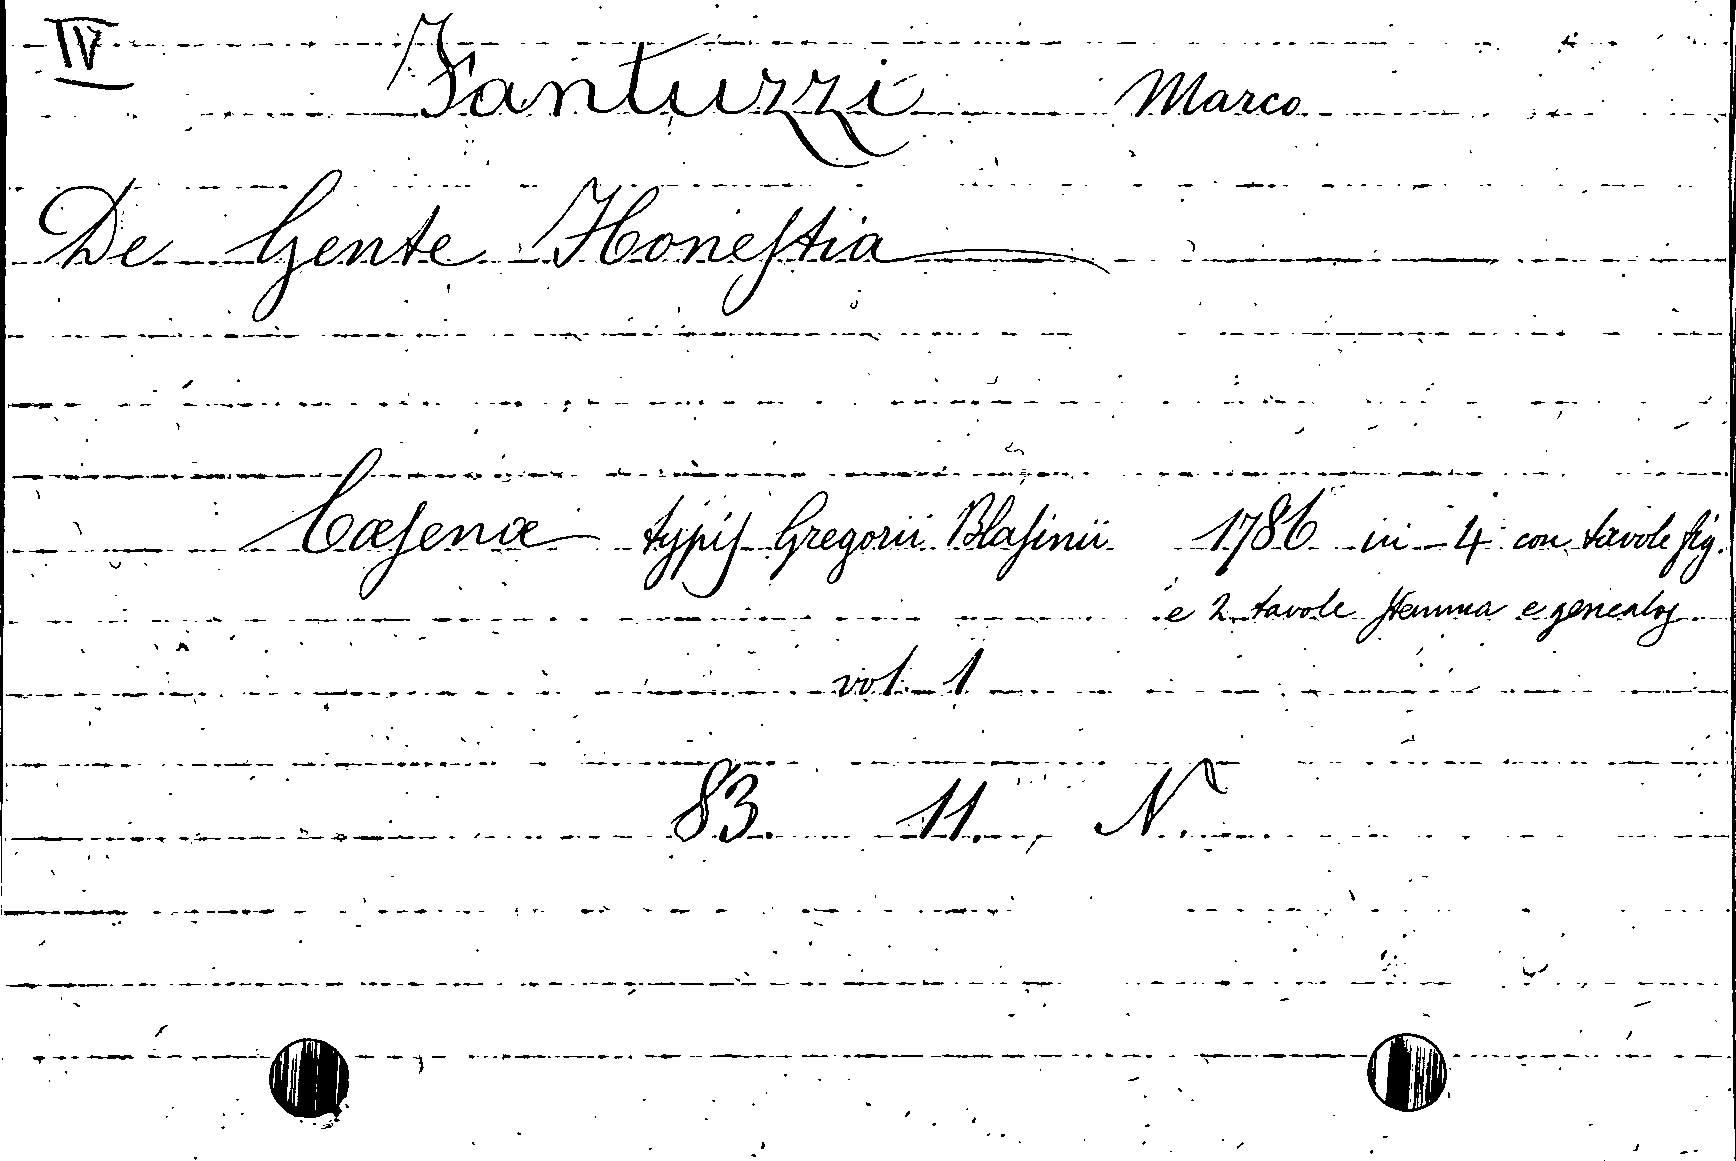 IV
Fantuzzi Marco
De Gente Honeſtia
Cæſenæ typiſ Gregorii Blaſinii 1786 in-4 con tavole fig.
e 2 tavole ſtemma e genealog.
vol. 1
83. 11. N.